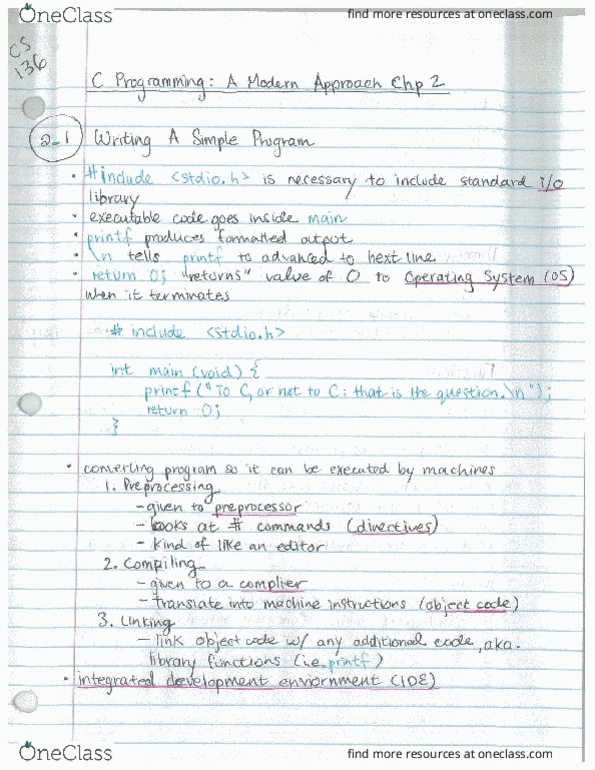 OneClass
find more resources at oneclass.com
CS
136
C Programming: A Modern Approach Chp 2
2.1 Writing A Simple Program
• #include <stdio.h> is necessary to include standard i/o
library
• executable code goes inside main
• printf produces formatted output
• \n tells printf to advanced to next line
• return 0; "returns" value of 0 to Operating System (OS)
when it terminates
# include <stdio.h>
int main (void) {
printf ("To C, or not to C: that is the question.\n");
return 0;
}
• converting program so it can be executed by machines
1. Preprocessing
- given to preprocessor
- looks at # commands (directives)
- kind of like an editor
2. Compiling
- given to a complier
- translate into machine instructions (object code)
3. Linking
- link object code w/ any additional code, aka.
library functions (i.e. printf)
• integrated development enviornment (IDE)
OneClass
find more resources at oneclass.com